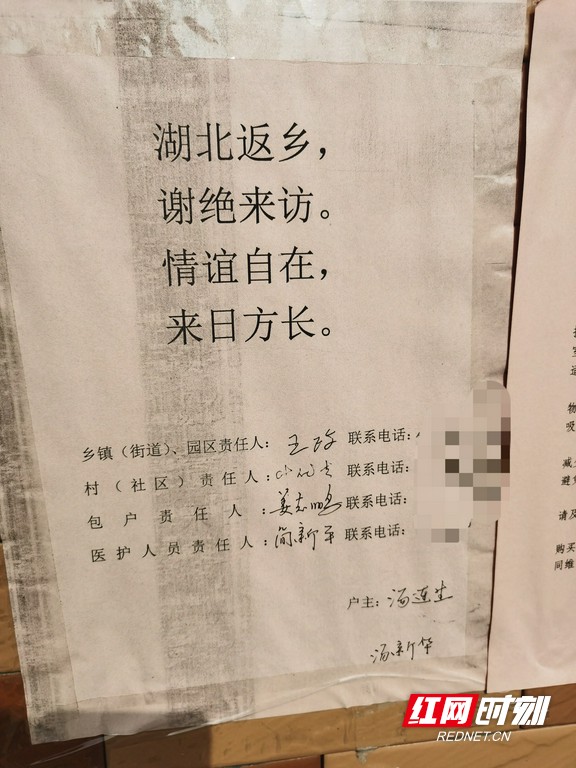 湖北返乡，
谢绝来访。
情谊自在，
来日方长。
乡镇（街道）、园区责任人：王政 联系电话：
村（社区）责任人： 联系电话：
包户责任人：姜志鹏 联系电话：
医护人员责任人：简新平 联系电话：
户主：汤连生
汤新华
物
吸
减
避免
请及
购买
同维
红网时刻
REDNET.CN